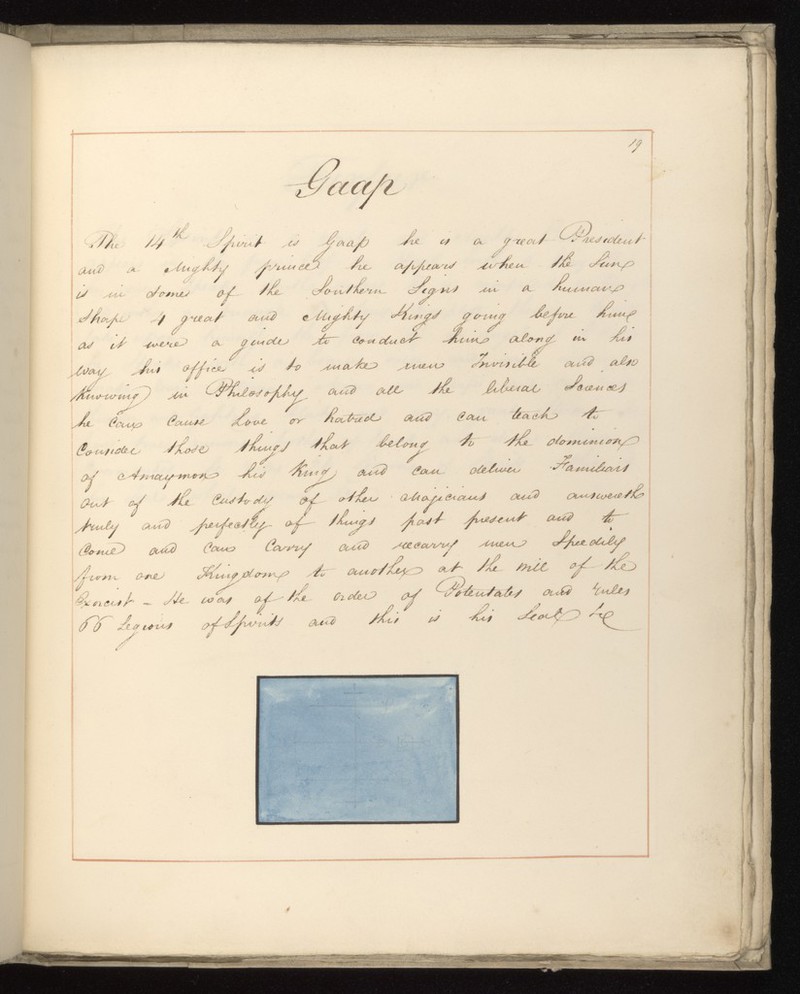 19
Gaap
The 14th Spirit is Gaap he is a great President
and a Mighty prince he appears when the Sun
is in some of the Southern Signs in a human
shape 4 great and Mighty Kings going before him
as it were a guide to conduct him along in his
way his office is to make men Invisible and also
knowing in Philosophy and all the liberal Sciences
he can cause Love or hatred and can teach to
Consider those things that belong to the dominion
of Amaymon his King and can deliver Familiars
out of the custody of other Magicians and answereth
truly and perfectly of things past present and to
Come and can Carry and recarry men Speedily
from one Kingdom to another at the will of the
Exorcist - He was of the order of Potentates and rules
66 Legions of Spirits and this is his Seal &c